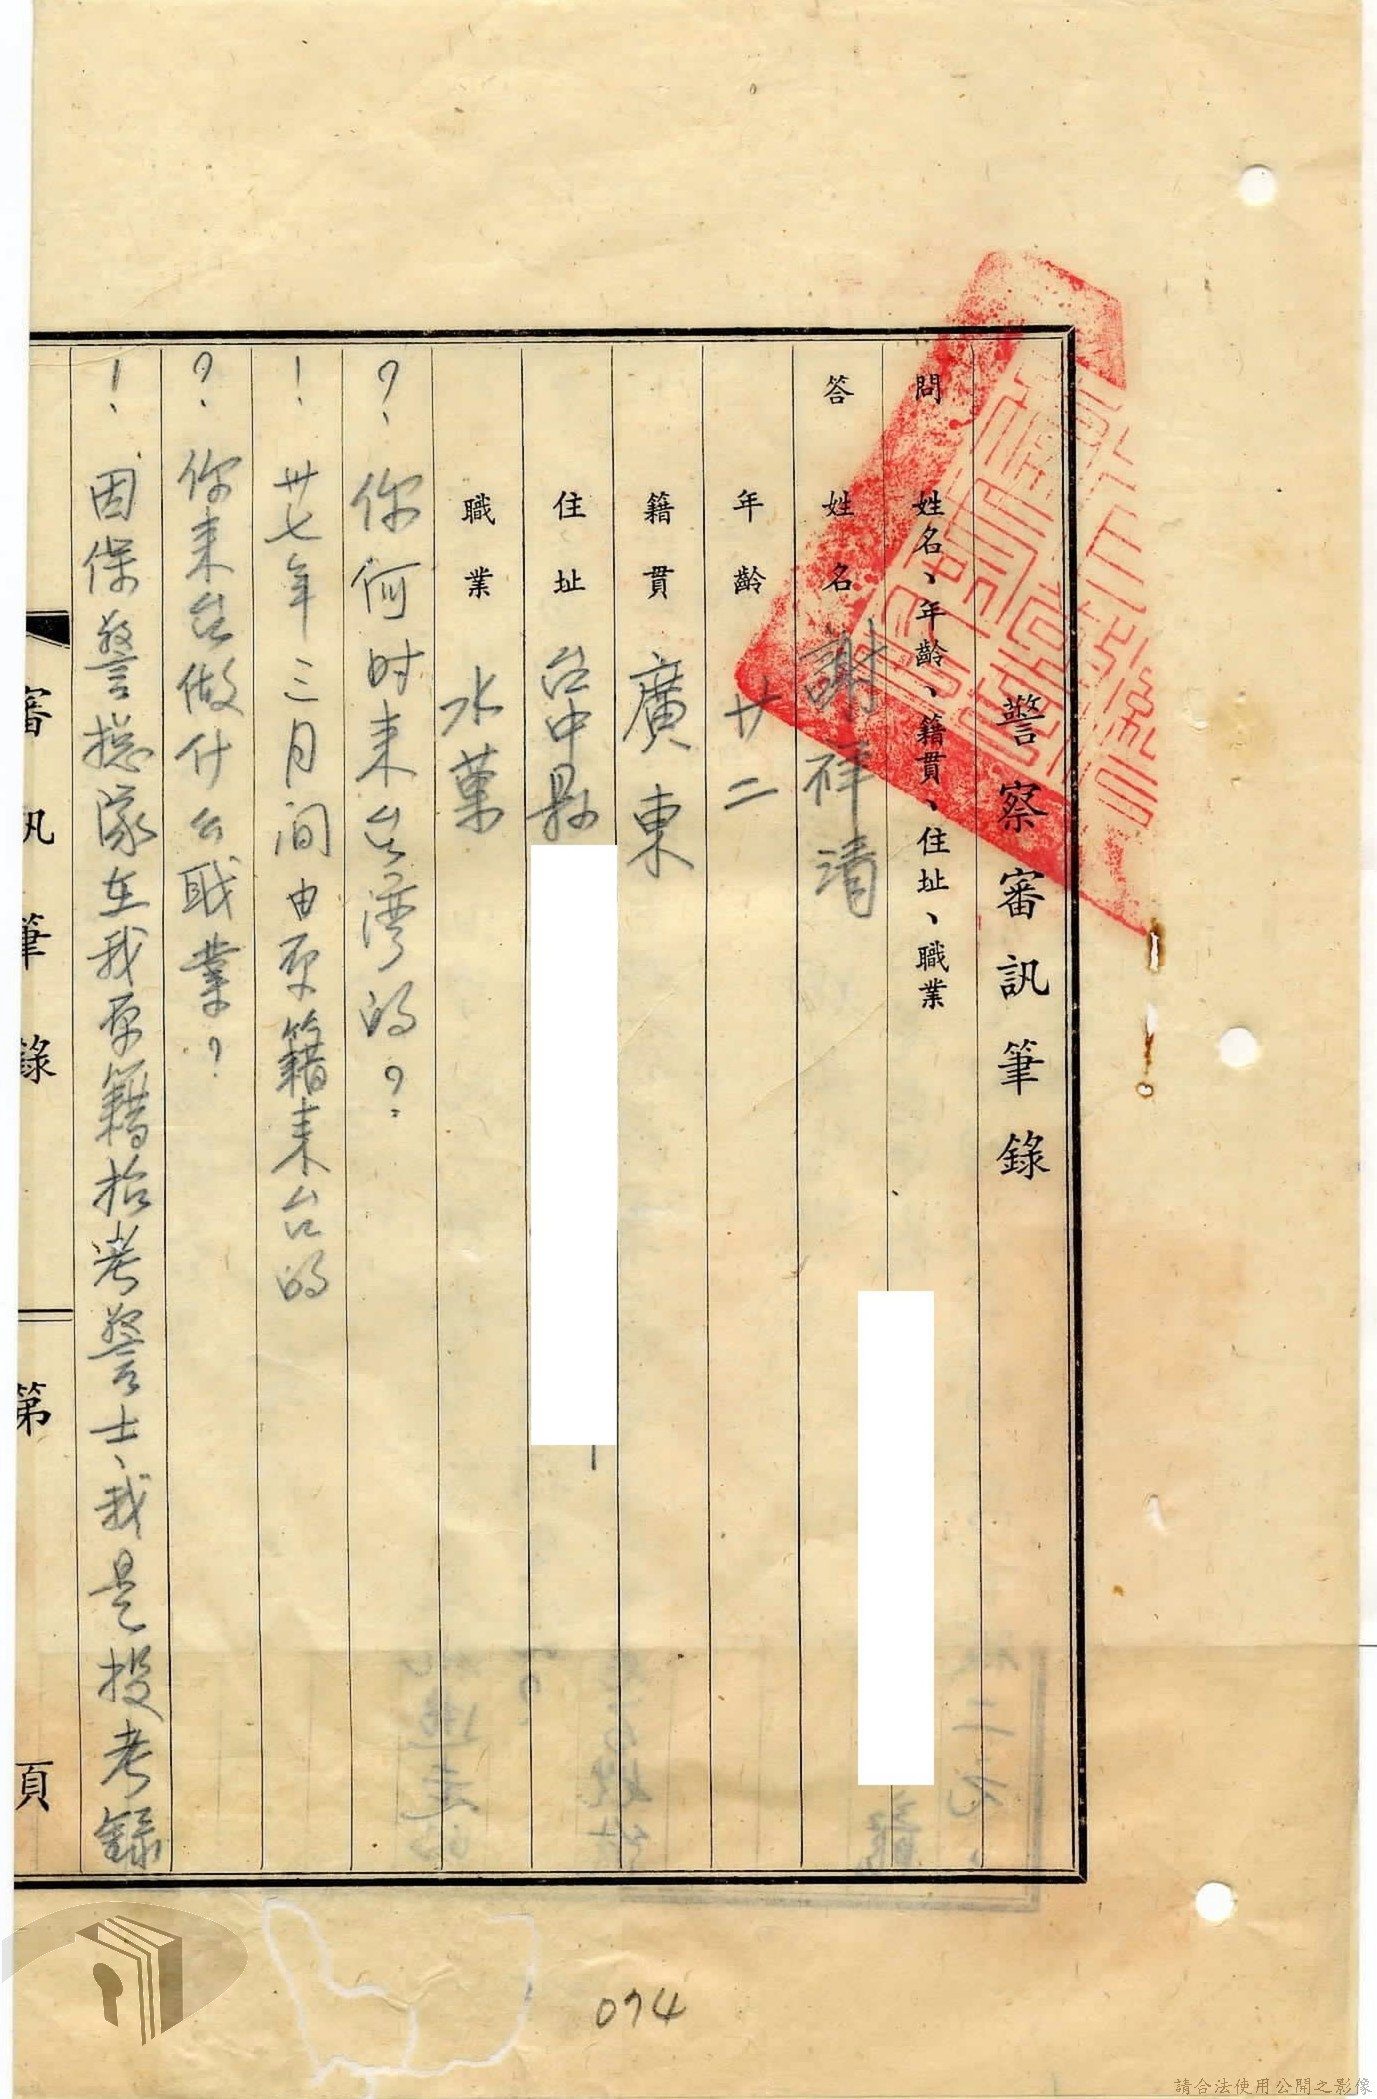 警察審訊筆錄
問 姓名、年齡、籍貫、住址、職業
答 姓名 謝祥清
年齡 廿二
籍貫 廣東
住址 台中县
職業 水菓
?. 你何时来台湾的?
! 卅七年三月间由原籍来台的
?. 你来台做什么职業?
!. 因保警總隊在我原籍招考警士、我是投考錄
審訊筆錄 第 頁
074
請合法使用公開之影像